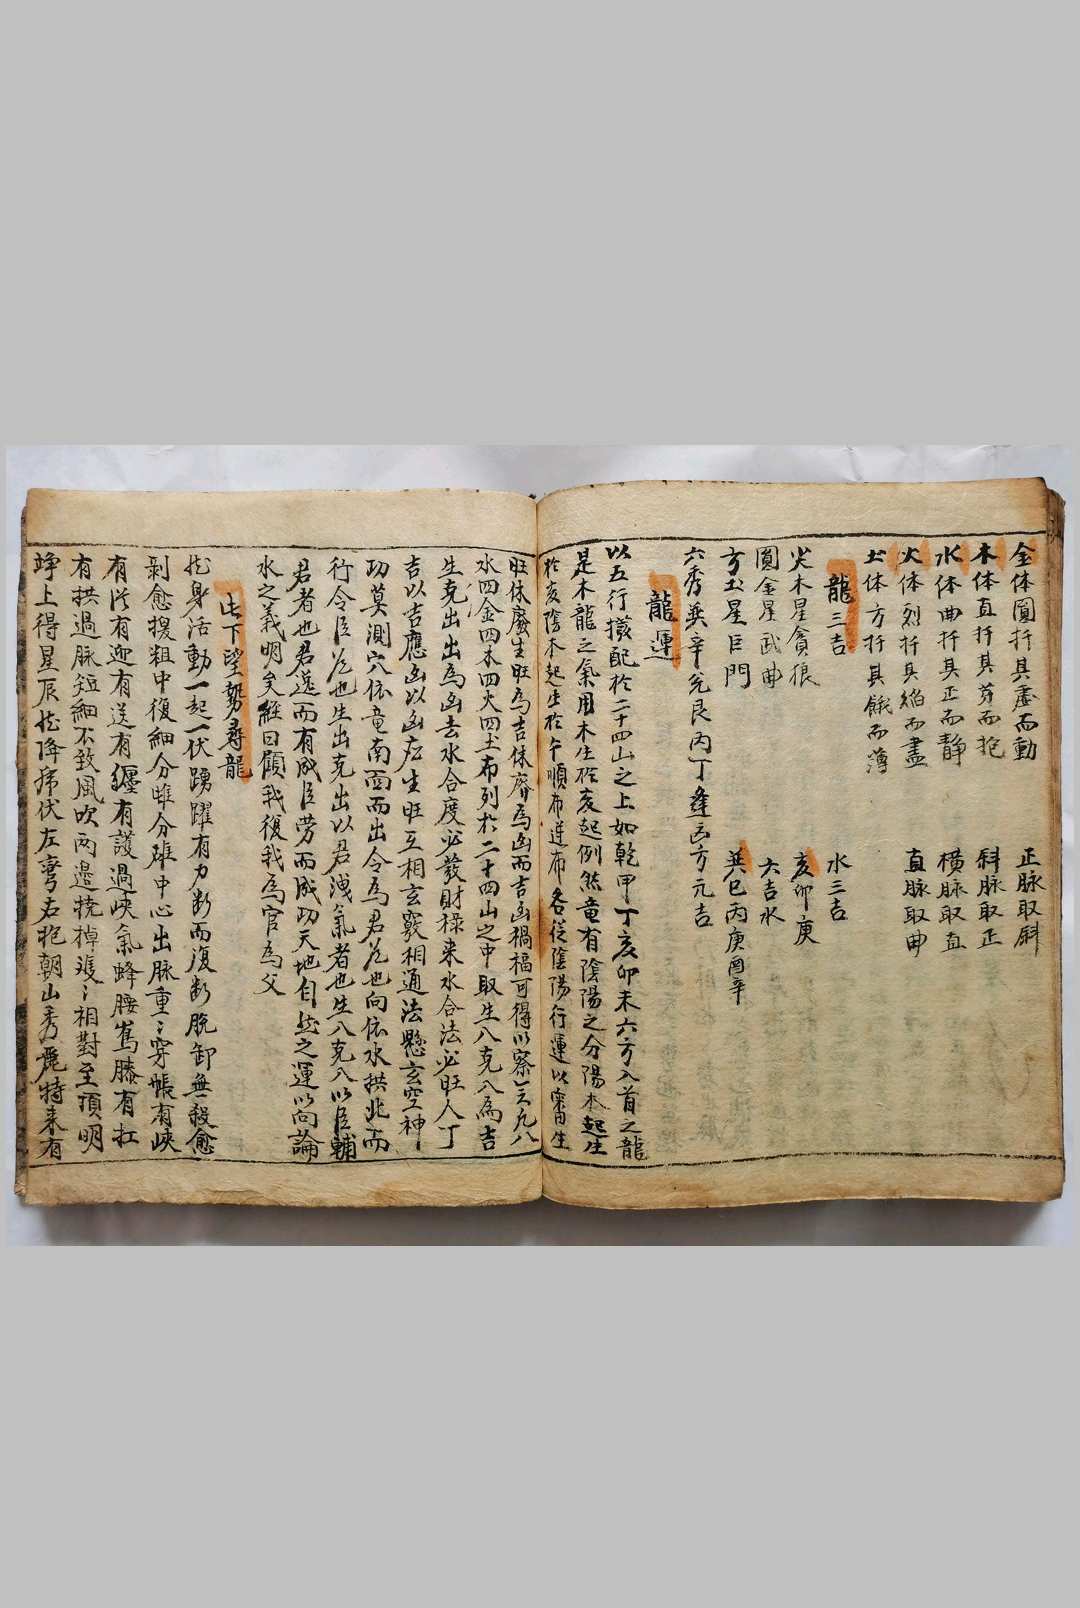 金体圓扦其虛而動 正脉取斜
木体直扦其芽而抱 斜脉取正
水体曲扦其正而靜 横脉取直
火体烈扦其焰而盡 直脉取曲
土体方扦其餓而薄
龍三吉 水三吉
火木星貪狼 亥卯庚
圓金星武曲 六吉水
方土星巨門 巽巳丙庚酉辛
六秀巽辛兌艮丙丁逢凶方元吉
龍運
以五行撥配於二十四山之上如乾甲丁亥卯未六方入首之龍
是木龍之氣用木生於亥起例然竜有陰陽之分陽木起生
於亥陰木起生於午順布逆布各從陰陽行運以審生
旺休廢生旺為吉休廢為凶而吉凶禍福可得以察三九八
水四金四木四火四土布列於二十四山之中取生入克入為吉
生克出出為凶去水合度必發財禄来水合法必旺人丁
吉以吉應凶以凶应生旺互相玄竅相通法懸玄空神
功莫測穴依竜南面而出令為君位也向依水拱北而
行令臣位也生出克出以君洩氣者也生入克入以臣輔
君者也君逸而有成臣劳而成功天地自然之運以向論
水之義明矣經曰顧我復我為官為父
此下望勢尋龍
龙身活動一起一伏踴躍有力断而復断脱卸無殺愈
剝愈援粗中復細分雌分雄中心出脉重〻穿帳有峡
有从有迎有送有纏有護過峡氣蜂腰鶴膝有扛
有拱過脉短細不致風吹两邉挠棹雙〻相對至頂明
竫上得星辰龙降席伏左彎右抱朝山秀麗特来有